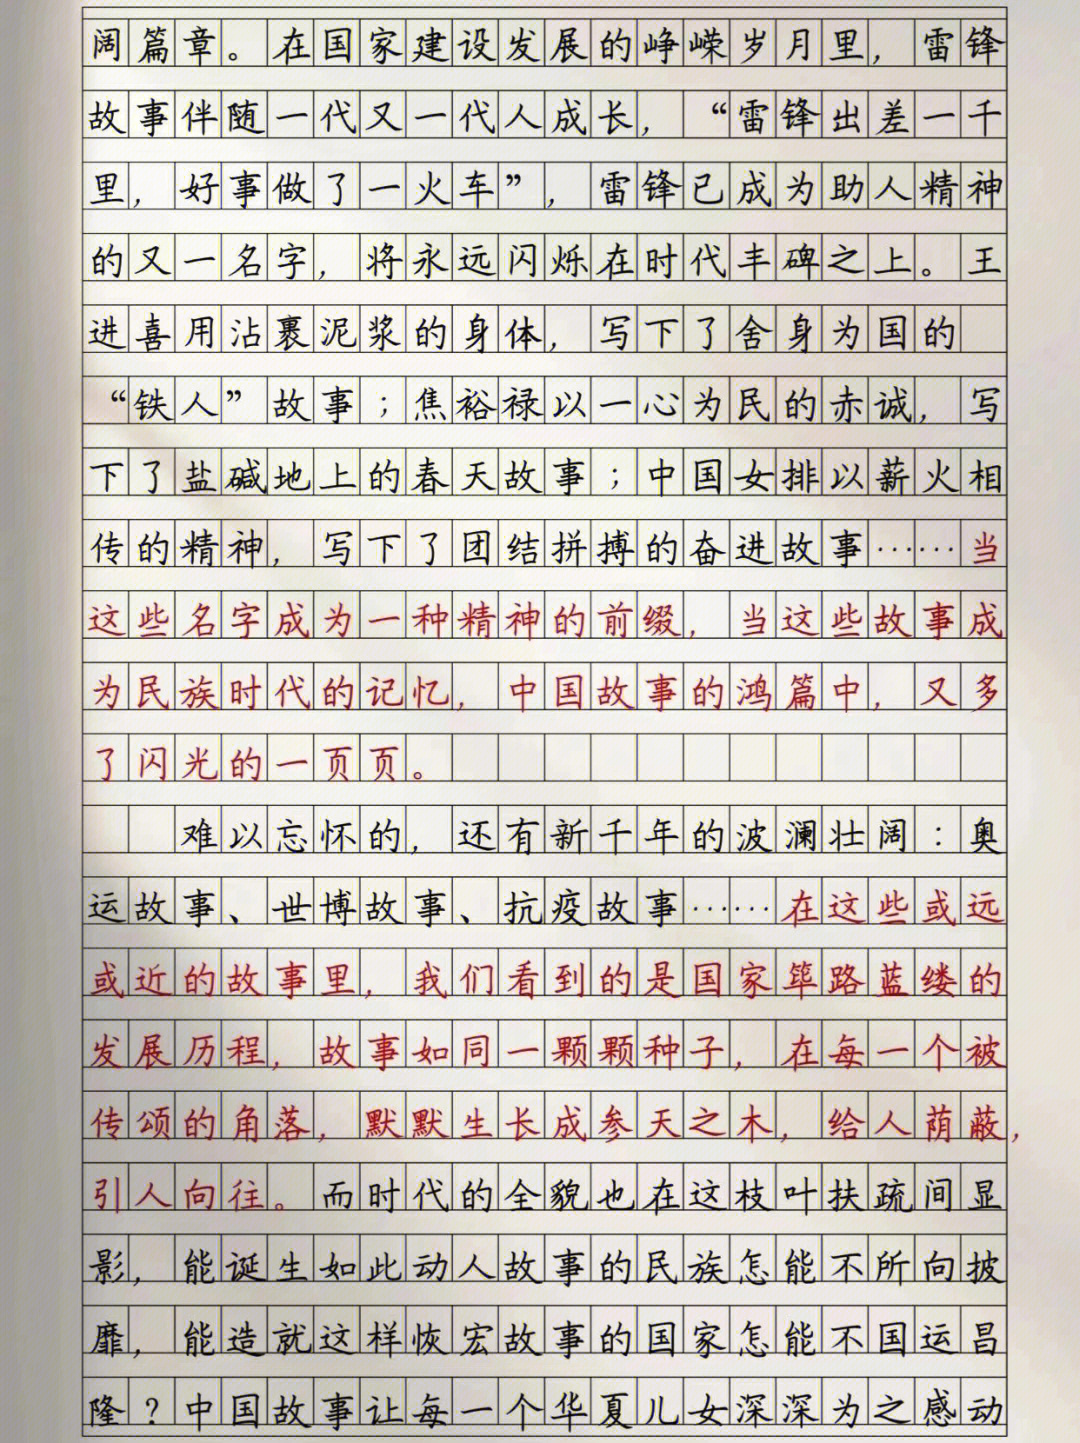 阔篇章。在国家建设发展的峥嵘岁月里，雷锋
故事伴随一代又一代人成长，“雷锋出差一千
里，好事做了一火车”，雷锋已成为助人精神
的又一名字，将永远闪烁在时代丰碑之上。王
进喜用沾裹泥浆的身体，写下了舍身为国的
“铁人”故事；焦裕禄以一心为民的赤诚，写
下了盐碱地上的春天故事；中国女排以薪火相
传的精神，写下了团结拼搏的奋进故事……当
这些名字成为一种精神的前缀，当这些故事成
为民族时代的记忆，中国故事的鸿篇中，又多
了闪光的一页页。
难以忘怀的，还有新千年的波澜壮阔：奥
运故事、世博故事、抗疫故事……在这些或远
或近的故事里，我们看到的是国家筚路蓝缕的
发展历程，故事如同一颗颗种子，在每一个被
传颂的角落，默默生长成参天之木，给人荫蔽，
引人向往。而时代的全貌也在这枝叶扶疏间显
影，能诞生如此动人故事的民族怎能不所向披
靡，能造就这样恢宏故事的国家怎能不国运昌
隆？中国故事让每一个华夏儿女深深为之感动